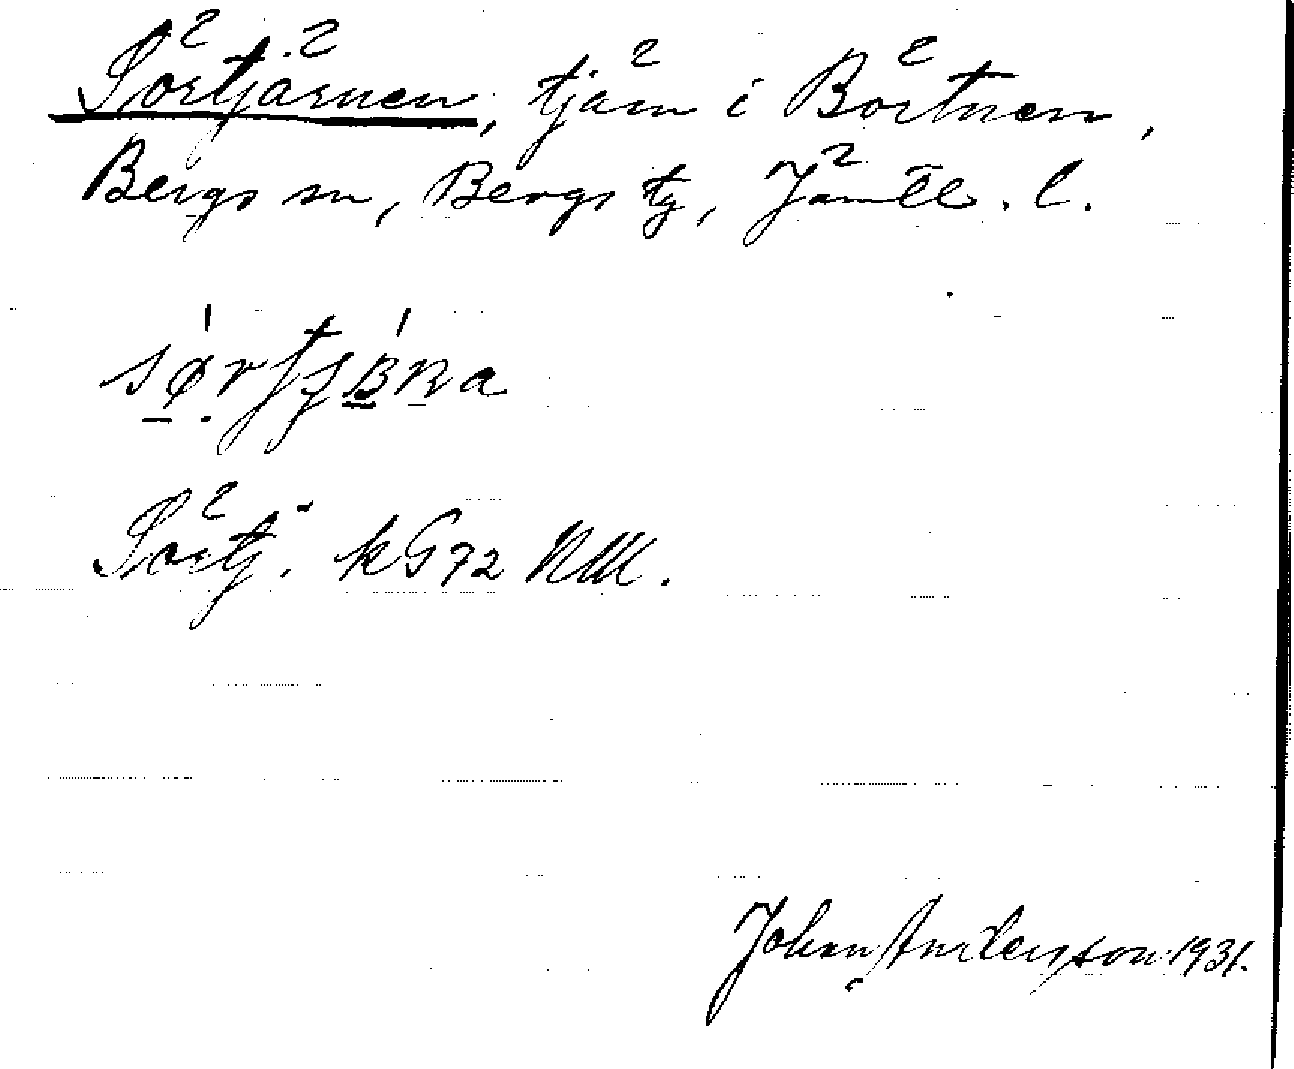 Sörtjärnen, tjärn i Börtnen,
Bergs sn, Bergs tg, Jämtl. l.
Sörtj. kG72 NM.
Johan Andersson 1931.